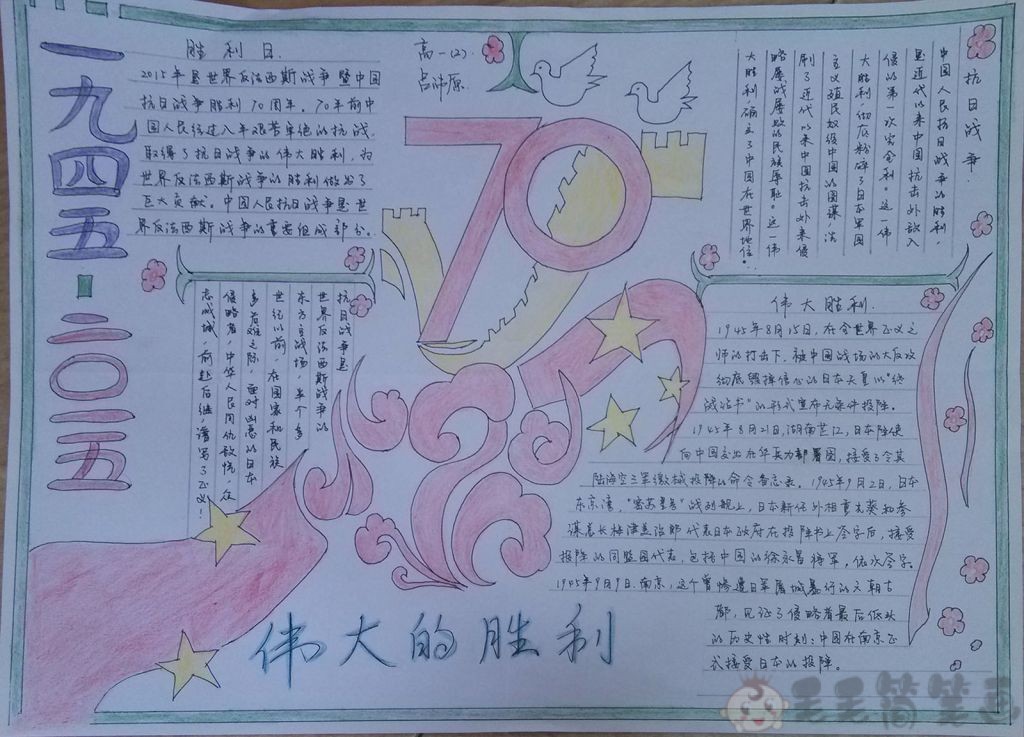 一九四五·二〇一五
胜利日
2015年是世界反法西斯战争暨中国
抗日战争胜利70周年。70年前中
国人民经过八年艰苦卓绝的抗战
取得了抗日战争的伟大胜利，为
世界反法西斯战争的胜利做出了
巨大贡献。中国人民抗日战争是世
界反法西斯战争的重要组成部分。
高一(2).
70
抗日战争
中国人民抗日战争的胜利，
是近代以来中国抗击外敌入
侵的第一次完全胜利。这一伟
大胜利，彻底粉碎了日本军国
主义殖民奴役中国的图谋，洗
刷了近代以来中国抗击外来侵
略屡战屡败的民族耻辱。这一伟
大胜利，确立了中国在世界地位。
抗日战争是
世界反法西斯战争的
东方主战场，半个多
世纪以前，在国家和民族
多着难之际，面对凶恶的日本
侵略者，中华人民同仇敌忾，众
志成城，前赴后继，谱写了正义！
伟大胜利.
1945年8月15日，在全世界正义之
师的打击下，被中国战场的大反攻
彻底毁掉信心的日本天皇以"终
战诏书"的形式宣布无条件投降。
1945年8月21日，湖南芷江，日本降使
向中国交出在华兵力部署图，接受了令其
陆海空三军缴械投降的命令备忘录。1945年9月2日，日本
东京湾，"密苏里号"战列舰上，日本新任外相重光葵和参
谋总长梅津美治郎代表日本政府在投降书上签字后，接受
投降的同盟国代表，包括中国的徐永昌将军，依次签字。
1945年9月9日，南京，这个曾惨遭日军屠城暴行的六朝古
都，见证了侵略者最后低头
的历史性时刻：中国在南京正
式接受日本的投降。
伟大的胜利
毛毛简笔画